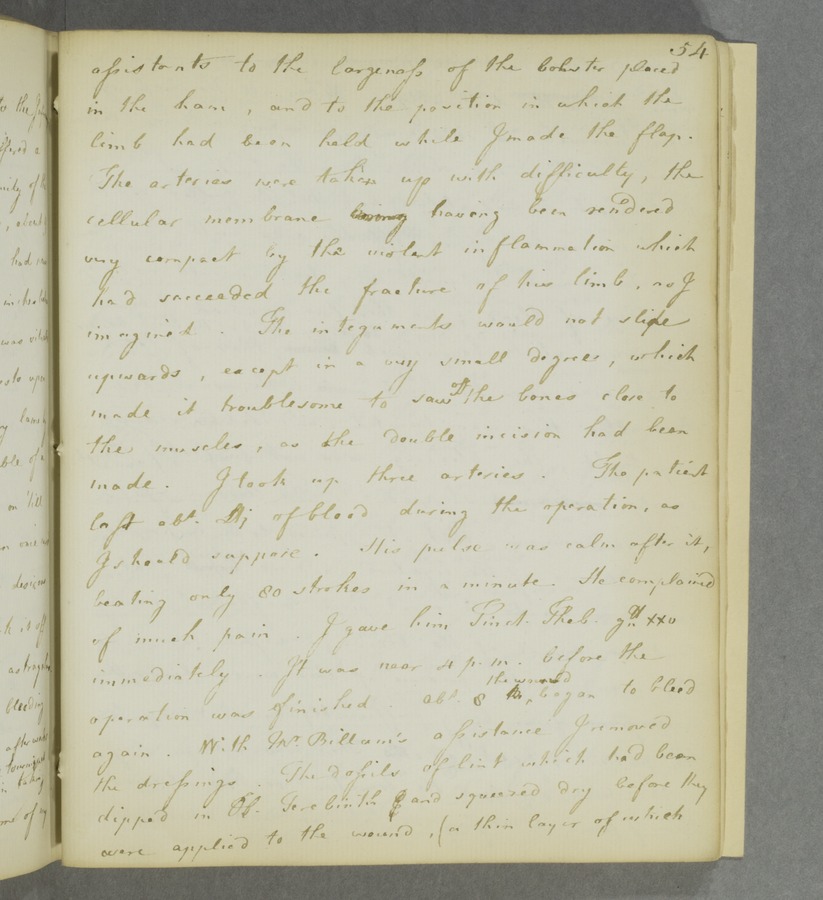 54
assistants to the largeness of the bolster placed
in the ham, and to the position in which the
limb had been held while I made the flap.
The arteries were taken up with difficulty, the
cellular membrane having been rendered
very compact by the violent inflammation which
had succeeded the fracture of his limb, as I
imagined. The integuments would not slide
upwards, except in a very small degree, which
made it troublesome to saw off the bones close to
the muscles, as the double incision had been
made. I took up three arteries. The patient
lost abt. ℔j of blood during the operation, as
I should suppose. His pulse was calm after it,
beating only 80 strokes in a minute. He complained
of much pain. I gave him Tinct. Theb. gtt xxv
immediately. It was near 4 p.m. before the
operation was finished. abt. 8 the wound began to bleed
again. With Mr. Billam's assistance I removed
the dressings. The dossils of lint which had been
dipped in Ol. Terebinth and squeezed dry before they
were applied to the wound, (a thin layer of which